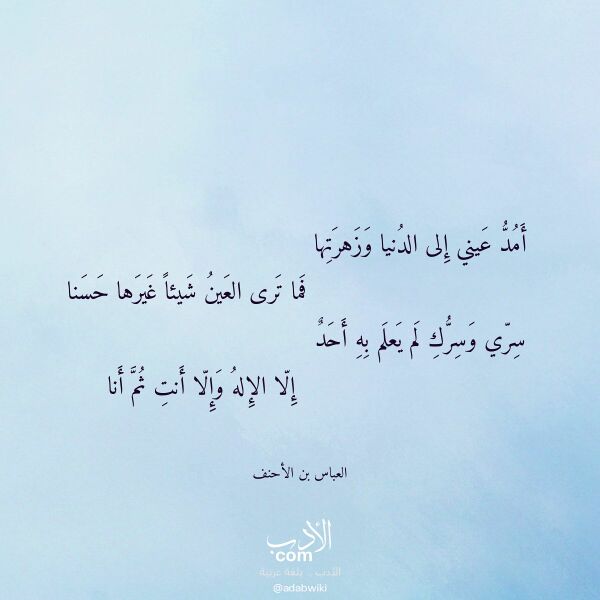 أَمُدُّ عَيني إِلى الدُنيا وَزَهرَتِها
فَما تَرى العَينُ شَيئاً غَيرَها حَسَنا
سِرّي وَسِرُّكِ لَم يَعلَم بِهِ أَحَدٌ
إِلّا الإِلهُ وَإِلّا أَنتِ ثُمَّ أَنا
العباس بن الأحنف
الأدب
com
الأدب .. بلغة عربية
@adabwiki